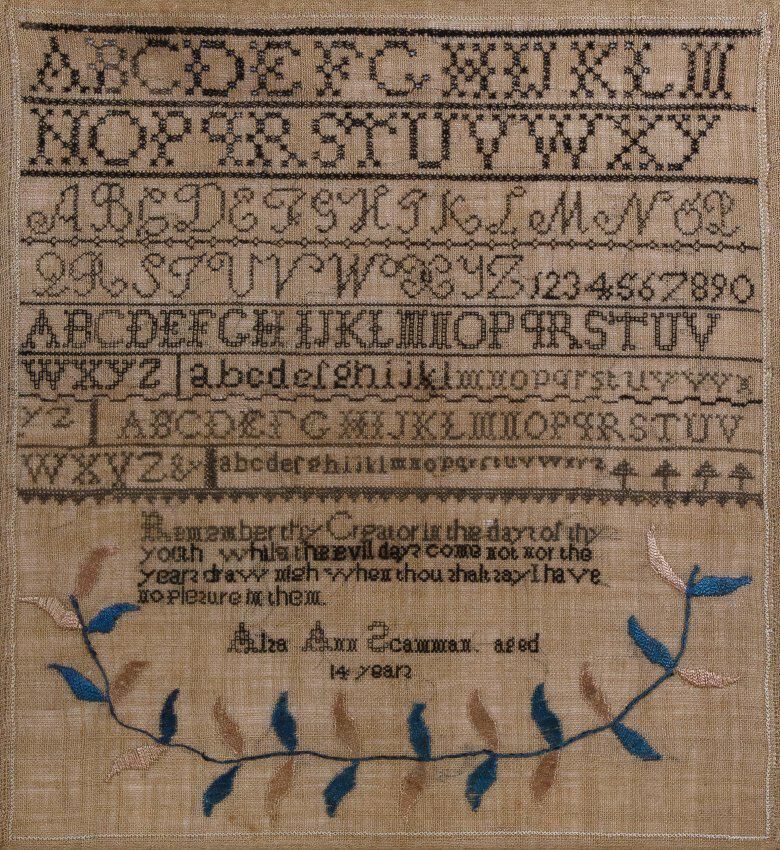 ABCDEFGHIJKLM
NOPQRSTUVWXY
ABCDEFGHIKLMNOP
QRSTUVWXYZ 1234567890
ABCDEFGHIJKLMNOPQRSTUV
WXYZ abcdefghijklmnopqrstuvwx
yz ABCDEFGHIJKLMNOPQRSTUV
WXYZ& abcdefghijklmnopqrstuvwxyz
Remember thy Creator in the days of thy
youth while the evil days come not nor the
years draw nigh when thou shalt say I have
no plesure in them
Alza Ann Scamman. aged
14 years